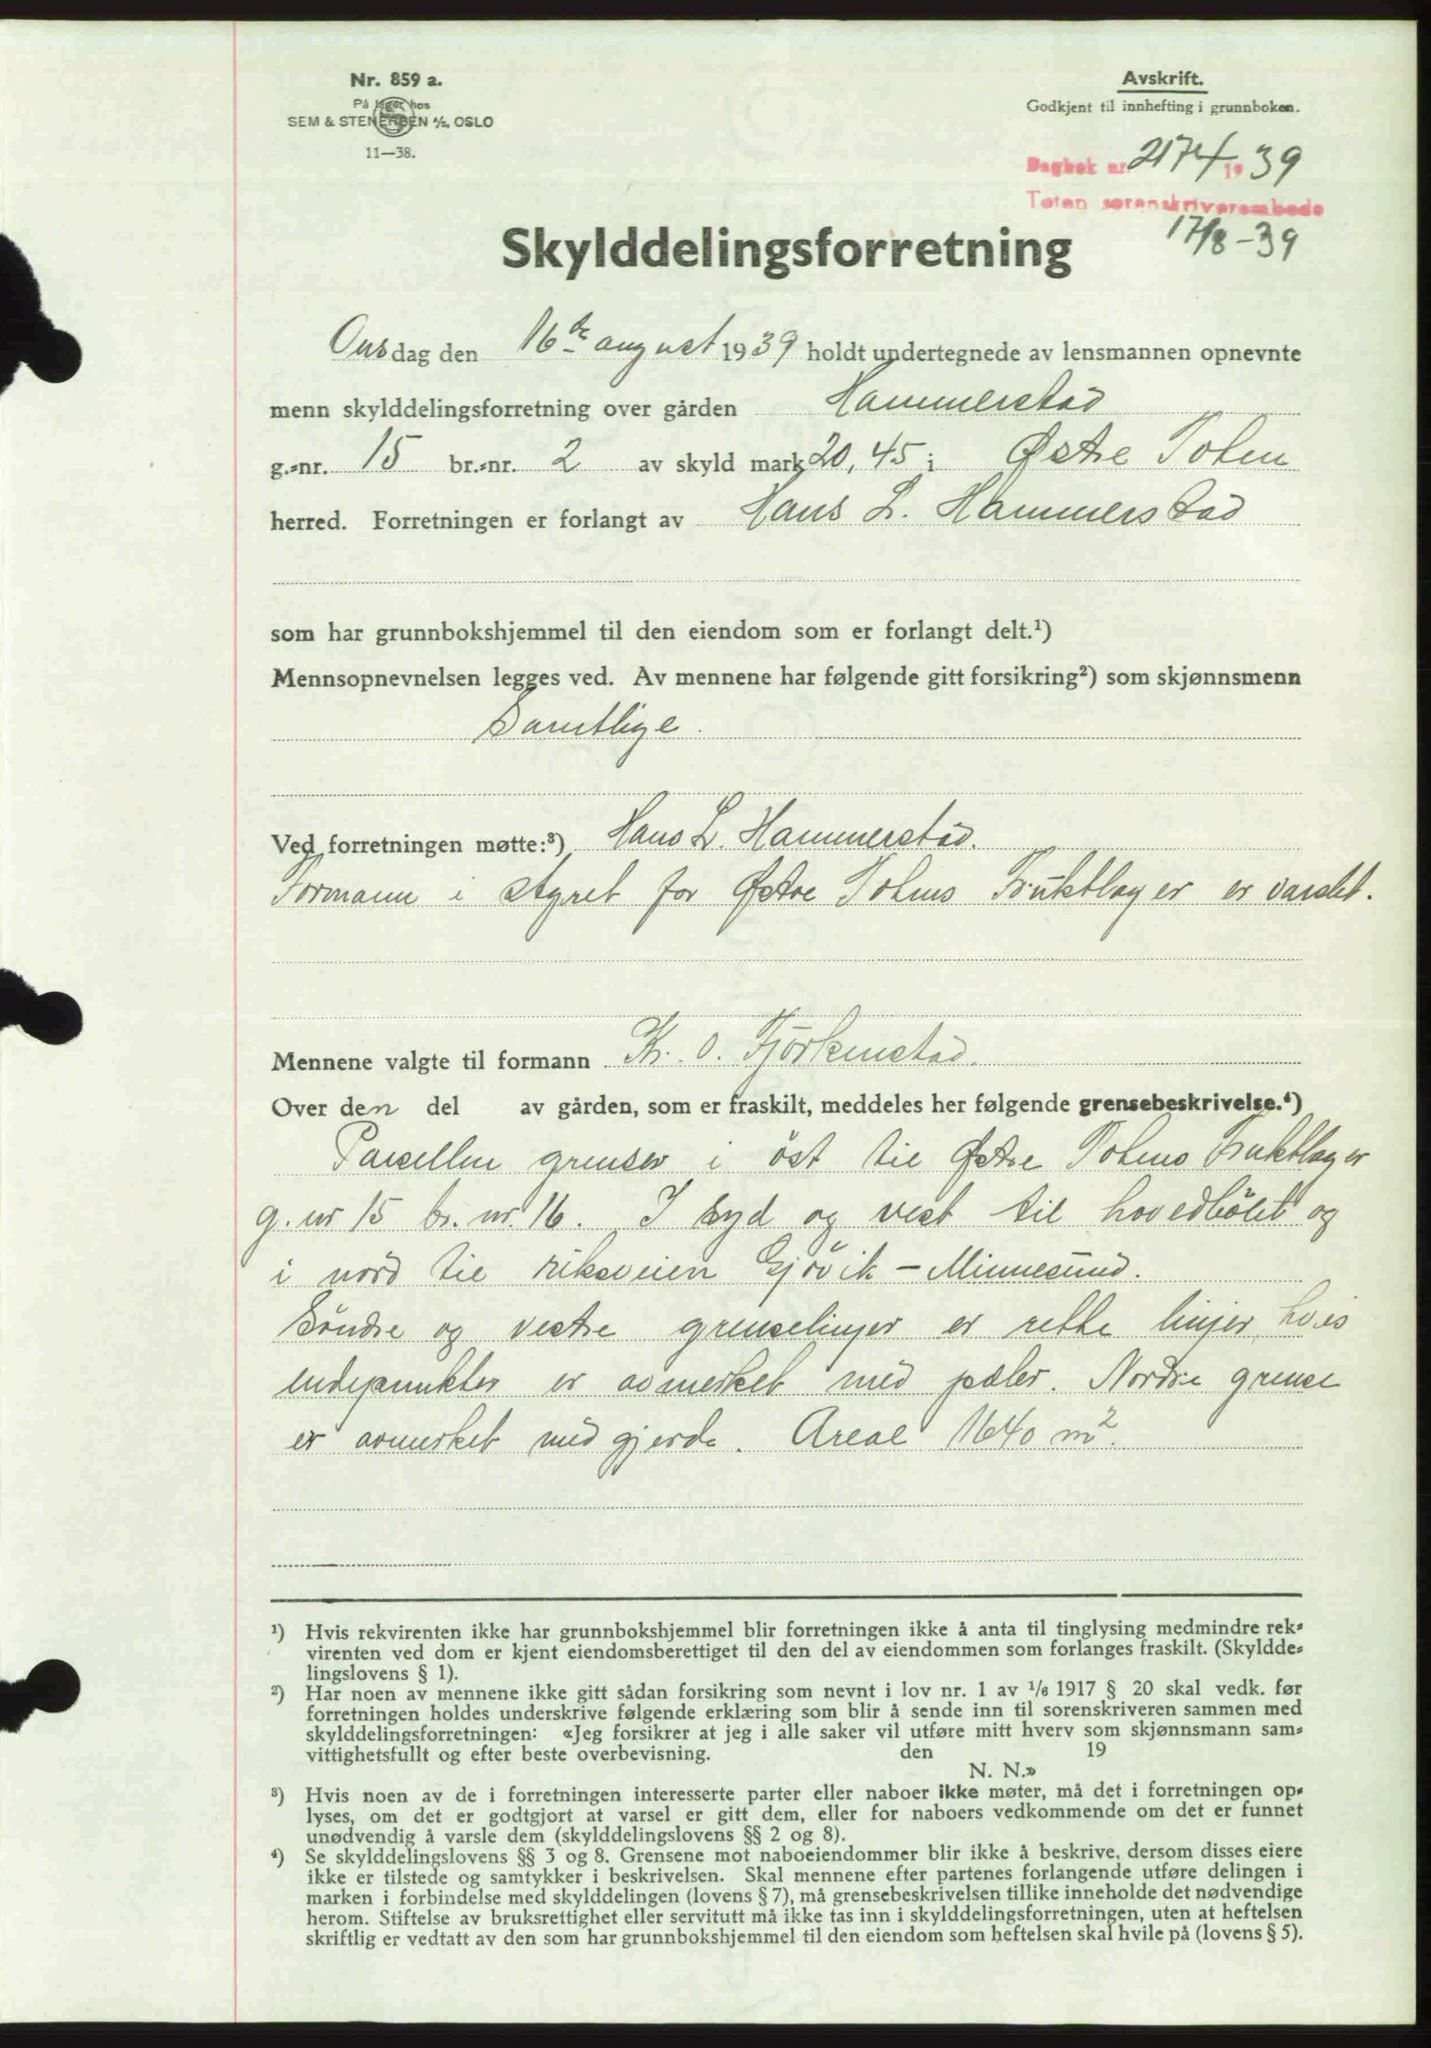 Nr. 859 a.
På lager hos
SEM & STENERSEN A/S, OSLO
11—38.
Avskrift.
Godkjent til innhefting i grunnboken.
Dagbok nr. 2174 1939
Toten sorenskriverembede
17/8-39
Skylddelingsforretning
Onsdag den 16de august 1939 holdt undertegnede av lensmannen opnevnte
menn skylddelingsforretning over gården Hammerstad
g.-nr. 15 br.-nr. 2 av skyld mark 20,45 i Østre Toten
herred. Forretningen er forlangt av Hans L. Hammerstad
som har grunnbokshjemmel til den eiendom som er forlangt delt.¹)
Mennsopnevnelsen legges ved. Av mennene har følgende gitt forsikring²) som skjønnsmenn
Samtlige.
Ved forretningen møtte:³) Hans L. Hammerstad.
Formann i styret for Østre Totens Fruktlager er varslet.
Mennene valgte til formann Kr. O. Fjørkenstad.
Over den del av gården, som er fraskilt, meddeles her følgende grensebeskrivelse.⁴)
Parsellen grenser i öst til Østre Totens Fruktlager
g. nr 15 br. nr. 16. I syd og vest til hovedbölet og
i nord til riksveien Gjövik - Minnesund.
Söndre og vestre grenselinjer er rette linjer, hvis
endepunkter er avmerket med pæler. Nordre grense
er avmerket med gjerde. Areal 1640 m².
¹) Hvis rekvirenten ikke har grunnbokshjemmel blir forretningen ikke å anta til tinglysing medmindre rek-
virenten ved dom er kjent eiendomsberettiget til den del av eiendommen som forlanges fraskilt. (Skyldde-
lingslovens § 1).
²) Har noen av mennene ikke gitt sådan forsikring som nevnt i lov nr. 1 av 1/6 1917 § 20 skal vedk. før
forretningen holdes underskrive følgende erklæring som blir å sende inn til sorenskriveren sammen med
skylddelingsforretningen: «Jeg forsikrer at jeg i alle saker vil utføre mitt hverv som skjønnsmann sam-
vittighetsfullt og efter beste overbevisning. den 19
N. N.»
³) Hvis noen av de i forretningen interesserte parter eller naboer ikke møter, må det i forretningen op-
lyses, om det er godtgjort at varsel er gitt dem, eller for naboers vedkommende om det er funnet
unødvendig å varsle dem (skylddelingslovens §§ 2 og 8).
⁴) Se skylddelingslovens §§ 3 og 8. Grensene mot naboeiendommer blir ikke å beskrive, dersom disses eiere
ikke er tilstede og samtykker i beskrivelsen. Skal mennene efter partenes forlangende utføre delingen i
marken i forbindelse med skylddelingen (lovens § 7), må grensebeskrivelsen tillike inneholde det nødvendige
herom. Stiftelse av bruksrettighet eller servitutt må ikke tas inn i skylddelingsforretningen, uten at heftelsen
skriftlig er vedtatt av den som har grunnbokshjemmel til den eiendom som heftelsen skal hvile på (lovens § 5).